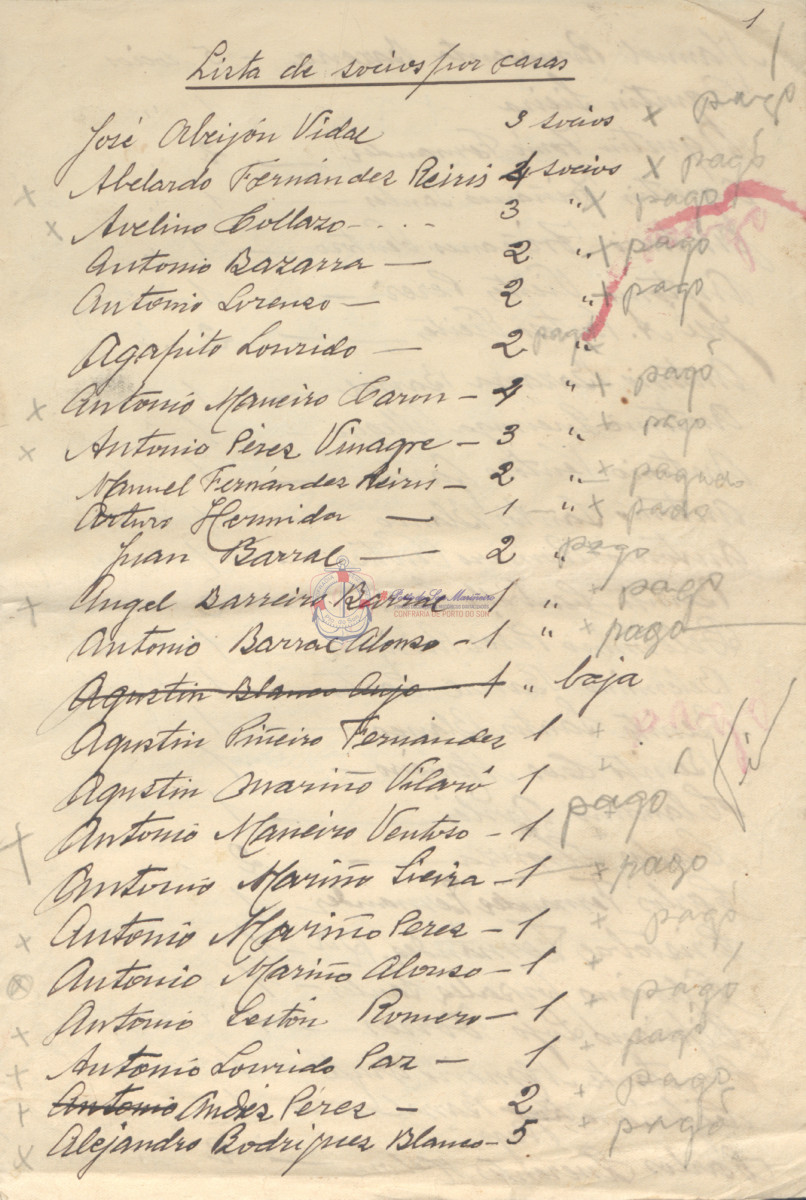 1
Lista de socios por casas
José Abeijón Vidal 3 socios x pagó
x Abelardo Fernández Reiris 4 socios x pagó
x Avelino Collazo - . . . 3 " x pago
Antonio Bazarra — 2 " x pago
Antonio Lorenzo — 2 " + pagó
Agapito Lourido — 2 " x pagó
x Antonio Maneiro Caron - 4 " + pagó
x Antonio Pérez Vinagre - 3 " + pago
Manuel Fernández Reiris - 2 " x pagado
Arturo Hermida — 1 " x pago
Juan Barral — 2 " pago
+ Angel Barreiro Barral 1 " + pago
Antonio Barral Alonso - 1 " x pago
Agustin Blanco 1 " baja
Agustin Piñeiro Fernández 1 +
Agustin Mariño Vilaró 1 +
+ Antonio Maneiro Ventoso - 1 pago
Antonio Mariño Lieira - 1 x pago
x Antonio Mariño Perez - 1 + pagó
x Antonio Mariño Alonso - 1 +
x Antonio Lestón Romero - 1 + pagó
+ Antonio Lourido Paz - 1 + pagó
+ Antonio Andés Pérez - 2 + pagó
x Alejandro Rodriguez Blanco - 5 + pagó
CONFRARÍA DE PORTO DO SON